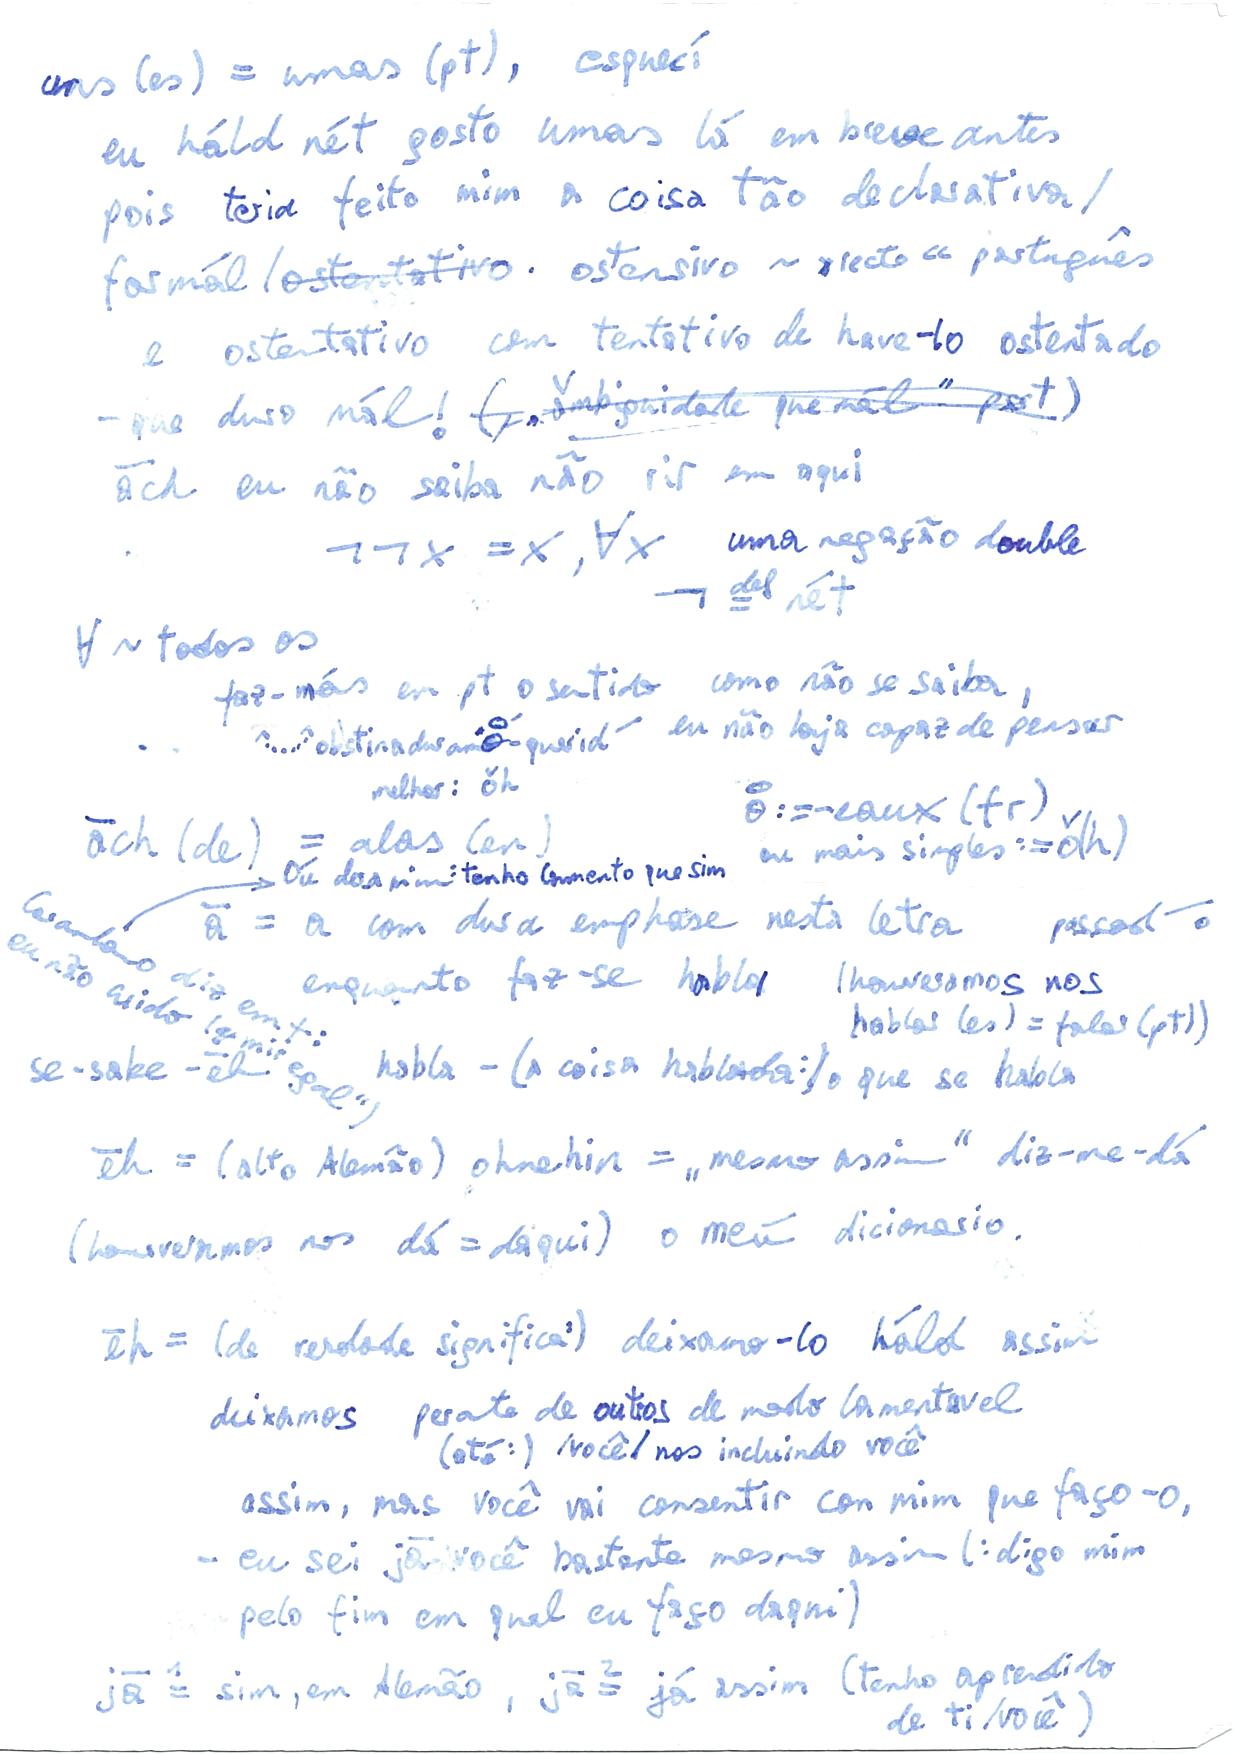 uns (es) = umas (pt), esquecí
eu háld nét gosto umas lá em breve antes
pois teria feito mim a coisa tão declarativa/
formál /ostentativo. ostensivo ~ “ português
e ostentativo com tentativo de have-lo ostentado
- que duro mál! (, „ămbiguidade que mál“ port)
āch eu não saiba não rir em aqui
¬¬x = x, ∀x uma negação double
¬ def= nét
∀ ~ todos os
faz-más em pt o sentido como não se saiba,
eu não haja capaz de pensar
melhor: ǒh
:=-eaux (fr)
āch (de) = alas (en)
ou mais simples := ǒ(h)
tenho lamento que sim
ā = a com dura emphase nesta letra
enquanto faz-se habla (houveramos nos
hablar (es) = falar (pt))
eu não
diz em x:
se-sabe-ēh habla - (a coisa hablada:)/o que se habla
ēh = (alto Alemão) ohnehin = „mesmo assim“ diz-me-dá
(houveramos nos dá = daqui) o meū dicionario.
ēh = (de verdade significa:) deixamo-lo háld assim
deixamos perante de outros de modo lamentavel
(até:) /você/ nos incluindo você
assim, mas você vai consentir con mim que faço-o,
- eu sei jā você bastante mesmo assim (: digo mim
pelo fim em qual eu faço daqui)
jā 1= sim, em Alemão, jā 2= já assim (tenho aprendido
de ti/você)